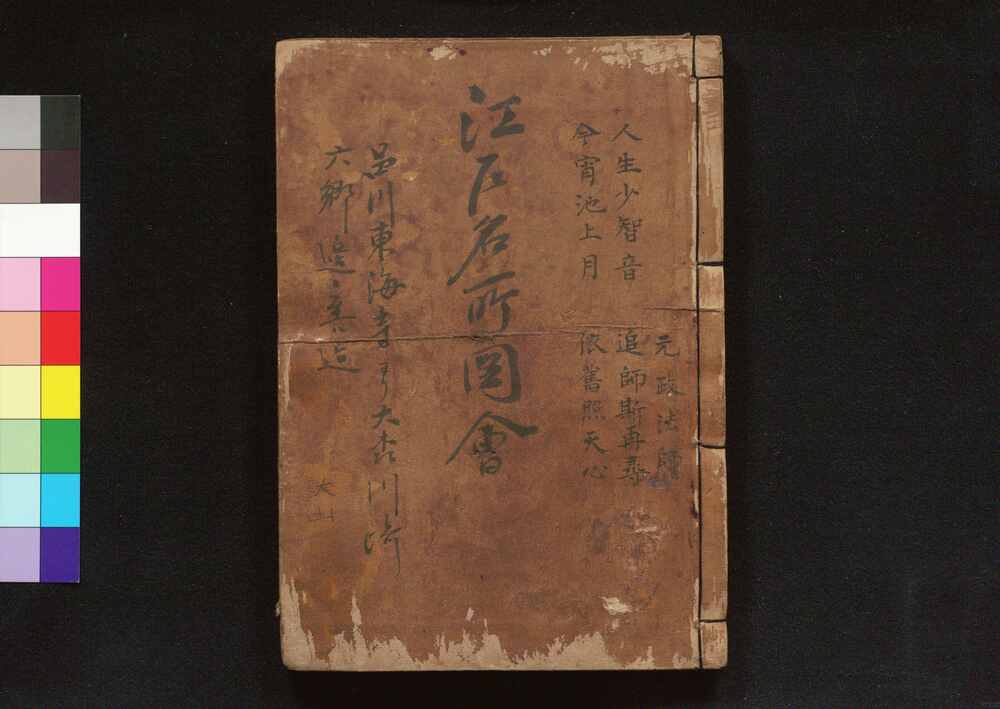 元政法師
人生少智音　追師斯再尋
今宵池上月　依舊照天心
江戸名所図會
品川東海寺より大森川崎
六郷邊
大山